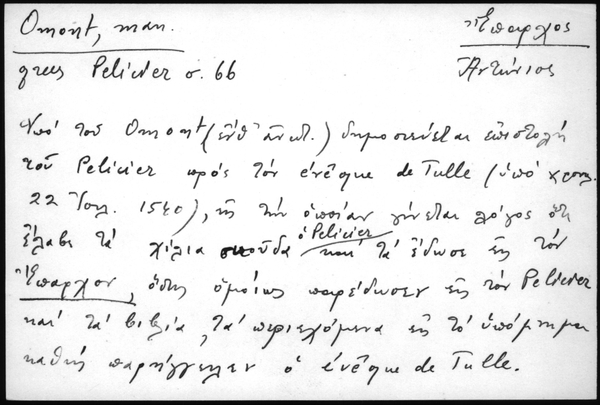 Omont, man.
Ἔπαρχος
grecs Pelicier σ. 66
Ἀντώνιος
Ὑπό τοῦ Omont (ἔνθ' ἀνωτ.) δημοσιεύεται ἐπιστολή
τοῦ Pelicier πρός τόν évêque de Tulle (ὑπό χρον.
22 Ἰουλ. 1540), εἰς τήν ὁποίαν γίνεται λόγος ὅτι
ἔλαβε τά χίλια σκοῦδα ὁ Pelicier καί τά ἔδωσε εἰς τόν
Ἔπαρχον, ὅστις ὁμοίως παρέδωσεν εἰς τόν Pelicier
καί τά βιβλία, τά περιεχόμενα εἰς τό ὑπόμνημα
καθώς παρήγγειλεν ὁ évêque de Tulle.